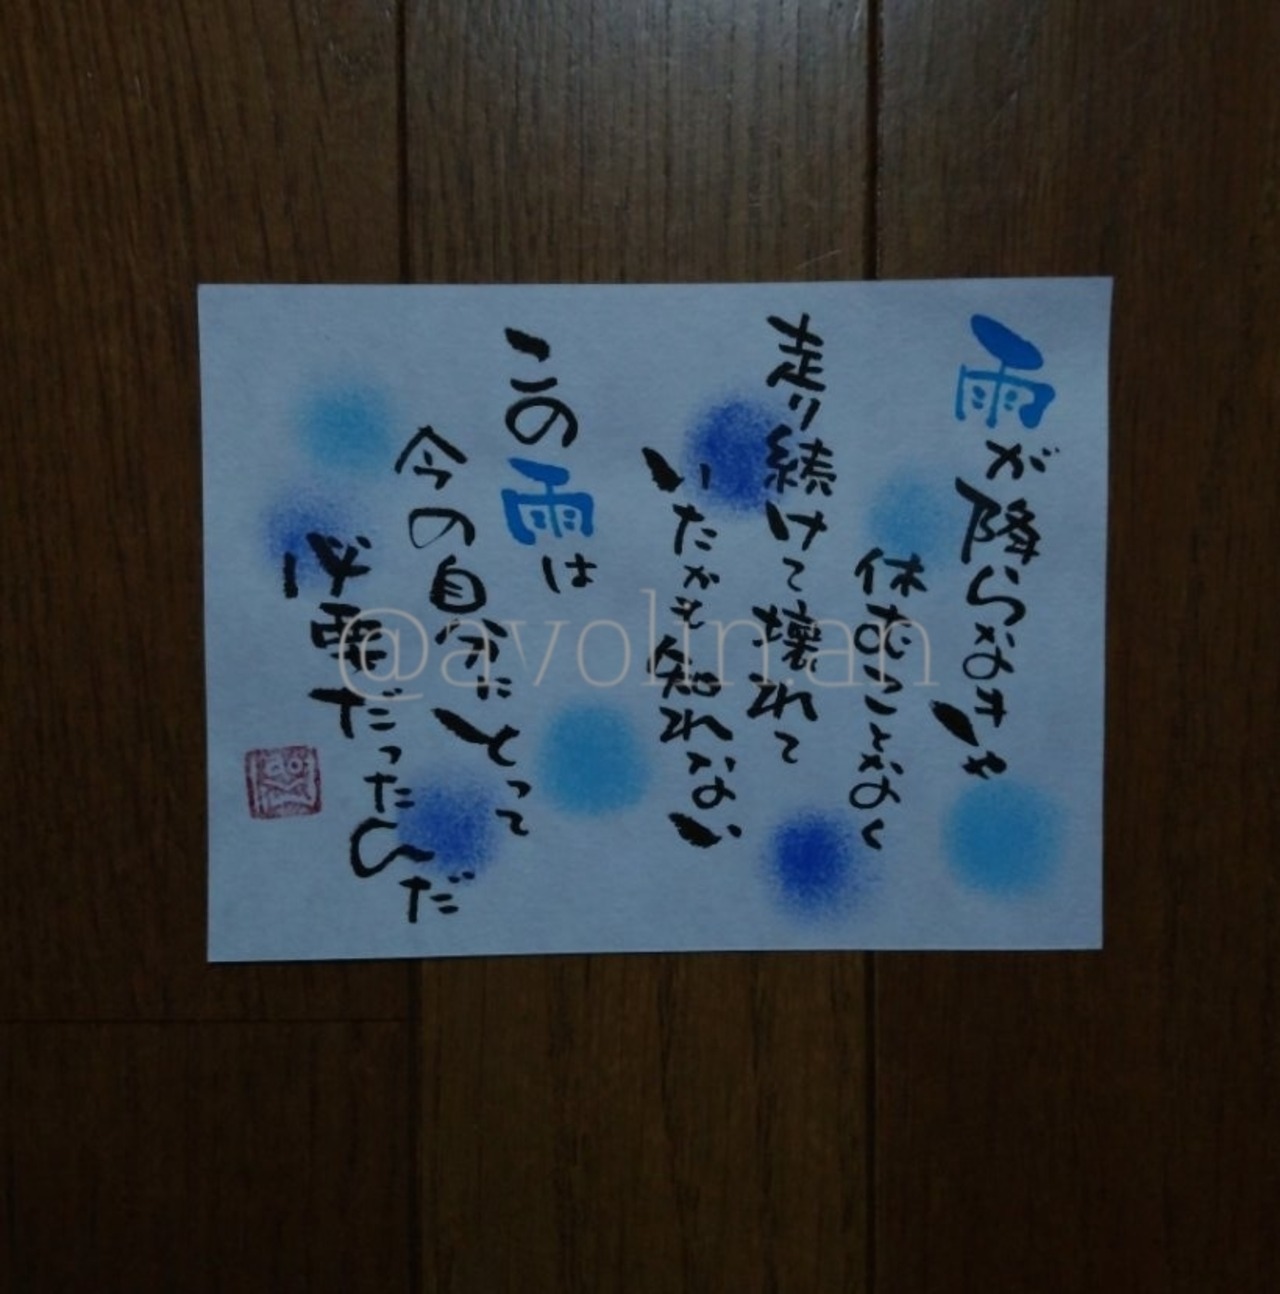 雨が降らなきゃ
休むことなく
走り続けて壊れて
いたかも知れない
この雨は
今の自分にとって
必要だったんだ
@avolin.an